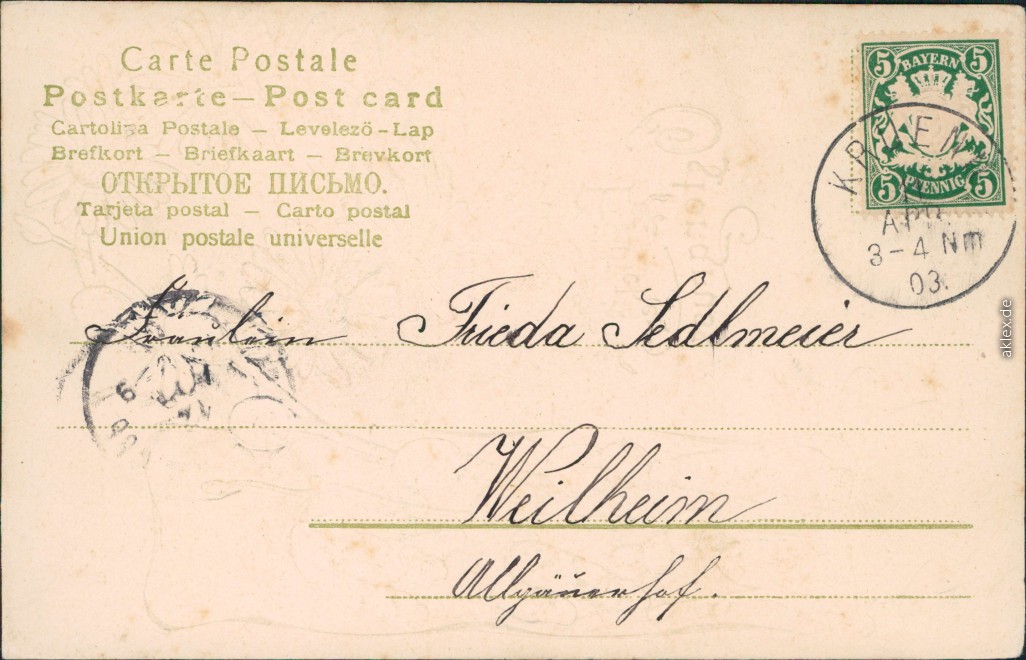 Carte Postale
Postkarte — Post card
Cartolina Postale — Levelező-Lap
Brefkort — Briefkaart — Brevkort
ОТКРЫТОЕ ПИСЬМО.
Tarjeta postal — Carto postal
Union postale universelle
5 BAYERN 5
5 PFENNIG 5
APR.
3-4 Nm
03.
Fräulein Frieda Sedlmeier
Weilheim
Allgäuerhof.
aklex.de